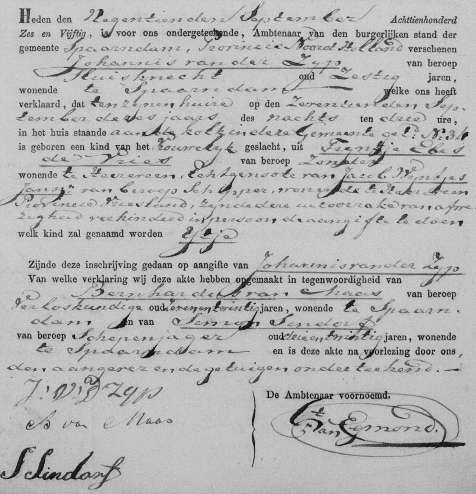 Heden den Negentienden September Achttienhonderd
Zes en Vijftig, is voor ons ondergeteekende, Ambtenaar van den burgerlijken stand der
gemeente Spaarndam, Provincie Noord Holland verschenen
Johannis van der Zyp van beroep
Sluisknecht oud Zestig jaren,
wonende te Spaarndam welke ons heeft
verklaard, dat ten zynen huize op den Zeventienden Sep
tember dezes jaars des nachts ten drie ure,
in het huis staande aan de Kolk in deze Gemeente get: No. 34
is geboren een kind van het Vrouwelyk geslacht, uit Femtje Ebes
de Vries van beroep Zonder
wonende te echtgenoote van Jacob Wyntjes
van beroep Schipper, wonende te
Provincie Vriesland, zynde deze uit oorzake van afwe
zigheid verhinderd in persoon de aangifte te doen
welk kind zal genaamd worden
Zijnde deze inschrijving gedaan op aangifte van Johannis van der Zyp
Van welke verklaring wij deze akte hebben opgemaakt in tegenwoordigheid van
Bernhardus van Maas van beroep
Verloskundige oud jaren, wonende te Spaarn
dam en van Simon Sendorf
van beroep Schepenjager oud jaren, wonende
te Spaarndam en is deze akte na voorlezing door ons,
den aangever en de getuigen onderteekend.
J: V: D Zyp
B van Maas
De Ambtenaar voornoemd.
van Egmond.
S Sindorf